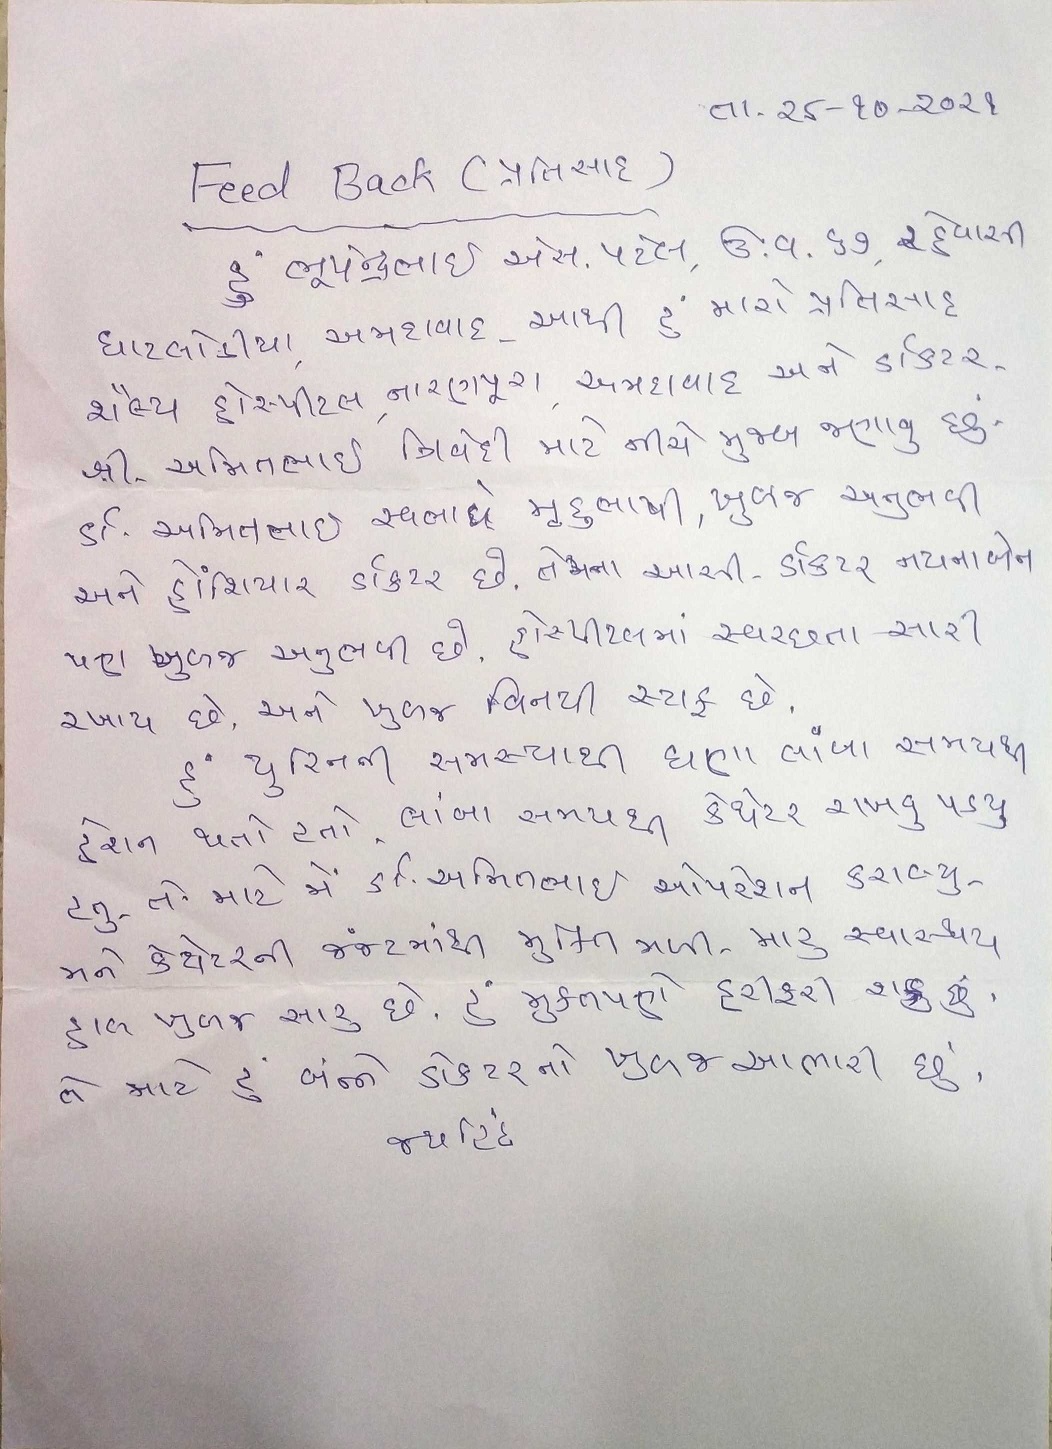 તા. ૨૬-૧૦-૨૦૨૧
Feed Back (પ્રતિસાદ)
હું ભૂપેન્દ્રભાઈ એસ. પટેલ, ઉ.વ. ૬૭, રહેવાસી
ઘાટલોડીયા, અમદાવાદ. આથી હું મારો પ્રતિસાદ
શૈલ્ય હોસ્પીટલ, નારણપૂરા, અમદાવાદ અને ડૉકટર.
શ્રી. અમિતભાઈ ત્રિવેદી માટે નીચે મુજબ જણાવુ છું.
ડૉ. અમિતભાઇ સ્વભાવે મૃદુભાષી, ખુબજ અનુભવી
અને હોંશિયાર ડૉકટર છે. તેમના આસી. ડૉકટર નયનાબેન
પણ ખુબજ અનુભવી છે. હોસ્પીટલમાં સ્વચ્છતા સારી
રખાય છે. અને ખુબજ વિનયી સ્ટાફ છે.
હું યુરિનની સમસ્યાથી ઘણા લાંબા સમયથી
હેરાન થતો હતો. લાંબા સમયથી કેથેટર રાખવુ પડયુ
હતુ. તે માટે મેં ડૉ. અમિતભાઇ ઓપરેશન કરાવ્યુ.
મને કેથેટરની જંજટમાંથી મુક્તિ મળી. મારુ સ્વાસ્થ્ય
હાલ ખુબજ સારુ છે. હું મુકતપણે હરીફરી શકુ છું.
તે માટે હું બંન્ને ડોકટરનો ખુબજ આભારી છું.
જયહિંદ